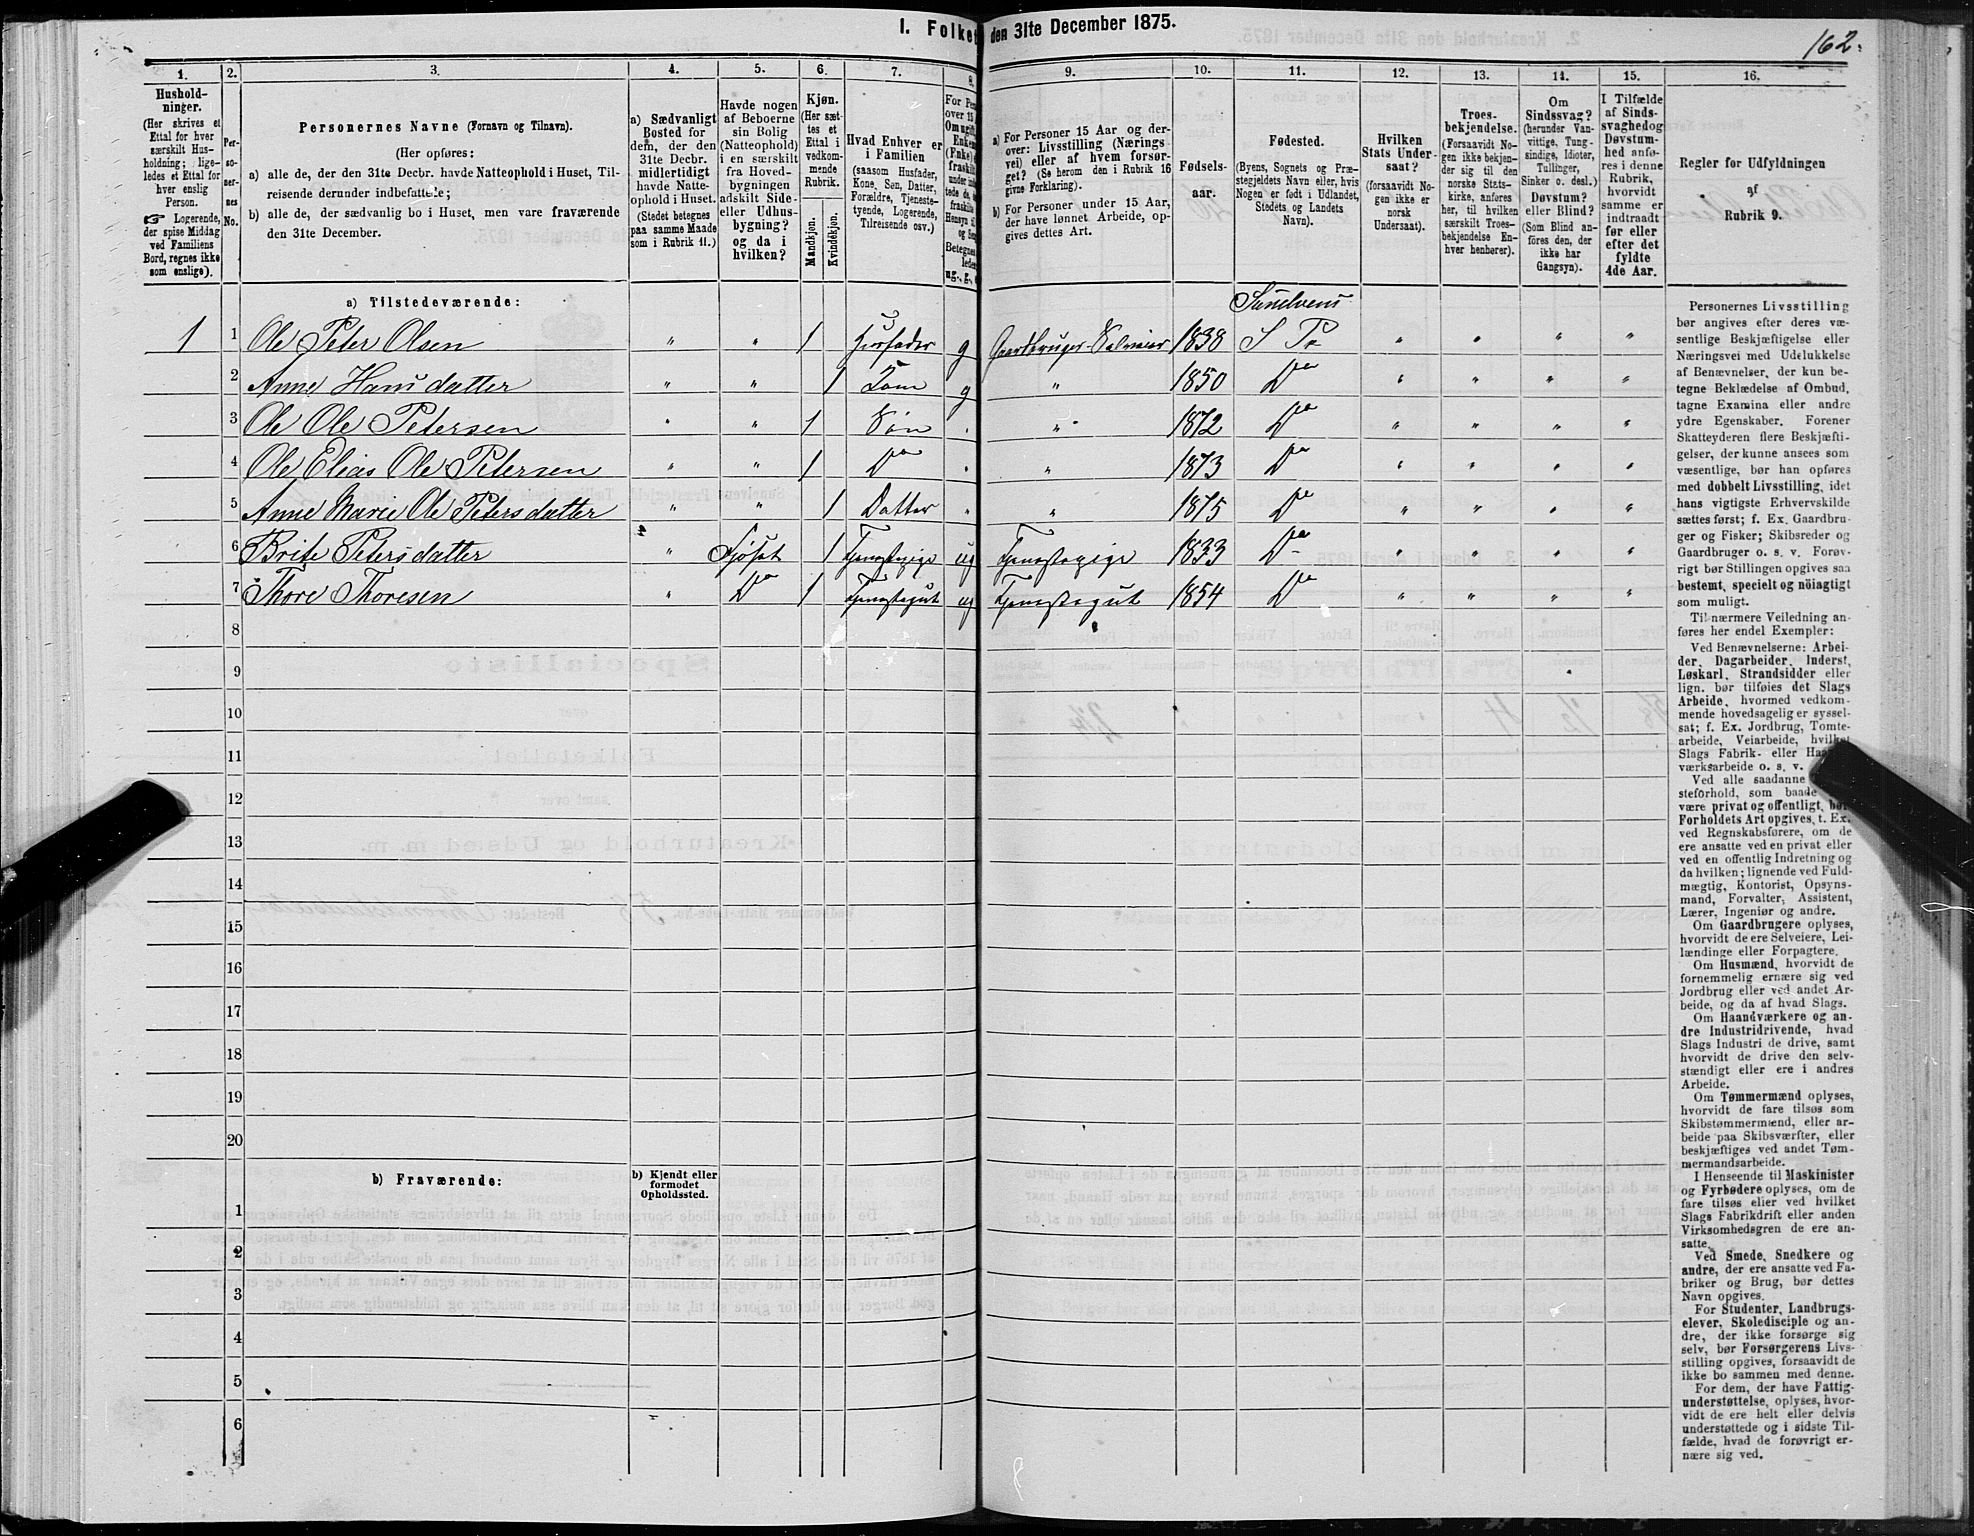 1. Folket
den 31te December 1875.
162.
1. 2. 3. 4. 5. 6. 7. 8. 9. 10. 11. 12. 13. 14. 15. 16.
Hushold-
ninger.
(Her skrives et
Ettal for hver
særskilt Hus-
holdning; lige-
ledes et Ettal for
hver enslig
Person.
☞ Logerende,
der spise Middag
ved Familiens
Bord, regnes ikke
som enslige).
Per-
so-
ner-
nes
No.
Personernes Navne (Fornavn og Tilnavn).
(Her opføres:
a) alle de, der den 31te Decbr. havde Natteophold i Huset, Til-
reisende derunder indbefattede;
b) alle de, der sædvanlig bo i Huset, men vare fraværende
den 31te December.
a) Sædvanligt
Bosted for
dem, der den
31te Decbr.
midlertidigt
havde Natte-
ophold i Huset.
(Stedet betegnes
paa samme Maade
som i Rubrik 11.)
Havde nogen
af Beboerne
sin Bolig
(Natteophold)
i en særskilt
fra Hoved-
bygningen
adskilt Side-
eller Udhus-
bygning?
og da i
hvilken?
Kjøn.
(Her sæt-
tes et
Ettal i
vedkom-
mende
Rubrik.
Mandkjøn.
Kvindekjøn.
Hvad Enhver er
i Familien
(saasom Husfader,
Kone, Søn, Datter,
Forældre, Tjeneste-
tyende, Logerende,
Tilreisende osv.)
a) For Personer 15 Aar og der-
over: Livsstilling (Nærings-
vei) eller af hvem forsør-
get? (Se herom den i Rubrik 16
givne Forklaring).
b) For Personer under 15 Aar,
der have lønnet Arbeide, op-
gives dettes Art.
Fødsels-
aar.
Fødested.
(Byens, Sognets og Præ-
stegjeldets Navn eller, hvis
Nogen er født i Udlandet,
Stedets og Landets
Navn).
Hvilken
Stats Under-
saat?
(forsaavidt No-
gen ikke er
norsk
Undersaat).
Troes-
bekjendelse.
(Forsaavidt No-
gen ikke bekjen-
der sig til den
norske Stats-
kirke, anføres
her, til hvilken
særskilt Troes-
bekjendelse En-
hver henhører).
Om
Sindssvag?
(herunder Van-
vittige, Tung-
sindige, Idioter,
Tullinger,
Sinker o. desl.)
Døvstum?
eller Blind?
(Som Blind an-
føres den, der
ikke har
Gangsyn).
I Tilfælde
af Sinds-
svaghedog
Døvstum-
hed anfø-
res i denne
Rubrik,
hvorvidt
samme er
indtraadt
før eller
efter det
fyldte
4de Aar.
Regler for Udfyldningen
af
Rubrik 9.
a) Tilstedeværende:
Sunelvens
1 1 Ole Peter Olsen " " 1 Husfader g Gaardbruger Selveier 1838 S Pr " " " "
2 Anne Hansdatter " " 1 Kone g " 1850 Do " " " "
3 Ole Ole Petersen " " 1 Søn " " 1872 Do " " " "
4 Ole Elias Ole Petersen " " 1 Do " " 1873 Do " " " "
5 Anne Marie Ole Petersdatter " " 1 Datter " " 1875 Do " " " "
6 Brite Petersdatter " Fjøset 1 Tjenestepige ug Tjenestepige 1833 Do " " " "
7 Thore Thoresen " Do 1 Tjenestegut ug Tjenestegut 1854 Do " " " "
8
9
10
11
12
13
14
15
16
17
18
19
20
b) Fraværende:
b) Kjendt eller
formodet
Opholdssted.
1
2
3
4
5
6
Personernes Livsstilling
bør angives efter deres væ-
sentlige Beskjæftigelse eller
Næringsvei med Udelukkelse
af Benævnelser, der kun be-
tegne Beklædelse af Ombud,
tagne Examina eller andre
ydre Egenskaber. Forener
Skatteyderen flere Beskjæfti-
gelser, der kunne ansees som
væsentlige, bør han opføres
med dobbelt Livsstilling, idet
hans vigtigste Erhvervskilde
sættes først; f. Ex. Gaardbru-
ger og Fisker; Skibsreder og
Gaardbruger o. s. v. Forøv-
rigt bør Stillingen opgives saa
bestemt, specielt og nöiagtigt
som muligt.
Til nærmere Veiledning an-
føres her endel Exempler:
Ved Benævnelserne: Arbei-
der, Dagarbeider, Inderst,
Løskarl, Strandsidder eller
lign. bør tilføies det Slags
Arbeide, hvormed vedkom-
mende hovedsagelig er syssel-
sat; f. Ex. Jordbrug, Tomte-
arbeide, Veiarbeide, hvilket
Slags Fabrik- eller Haand-
værksarbeide o. s. v.
Ved alle saadanne
steforhold, som baade
være privat og offentligt, bør
Forholdets Art opgives, t. Ex.
ved Regnskabsførere, om de
ere ansatte ved en privat eller
ved en offentlig Indretning og
da hvilken; lignende ved Fuld-
mægtig, Kontorist, Opsyns-
mand, Forvalter, Assistent,
Lærer, Ingeniør og andre.
Om Gaardbrugere oplyses,
hvorvidt de ere Selveiere, Lei-
lændinge eller Forpagtere.
Om Husmænd, hvorvidt de
fornemmelig ernære sig ved
Jordbrug eller ved andet Ar-
beide, og da af hvad Slags.
Om Haandværkere og an-
dre Industridrivende, hvad
Slags Industri de drive, samt
hvorvidt de drive den selv-
stændigt eller ere i andres
Arbeide.
Om Tømmermænd oplyses,
hvorvidt de fare tilsøs som
Skibstømmermænd, eller ar-
beide paa Skibsværfter, eller
beskjæftiges ved andet Tøm-
mermandsarbeide.
I Henseende til Maskinister
og Fyrbødere oplyses, om de
fare tilsøs eller ved hvilket
Slags Fabrikdrift eller anden
Virksomhedsgren de ere an-
satte.
Ved Smede, Snedkere og
andre, der ere ansatte ved Fa-
briker og Brug, bør dettes
Navn opgives.
For Studenter, Landbrugs-
elever, Skoledisciple og an-
dre, der ikke forsørge sig
selv, bør Forsørgerens Livs-
stilling opgives, forsaavidt de
ikke bo sammen med denne.
For dem, der have Fattig-
understøttelse, oplyses, hvor-
vidt de ere helt eller delvis
understøttede og i sidste Til-
fælde, hvad de forøvrigt er-
nære sig ved.